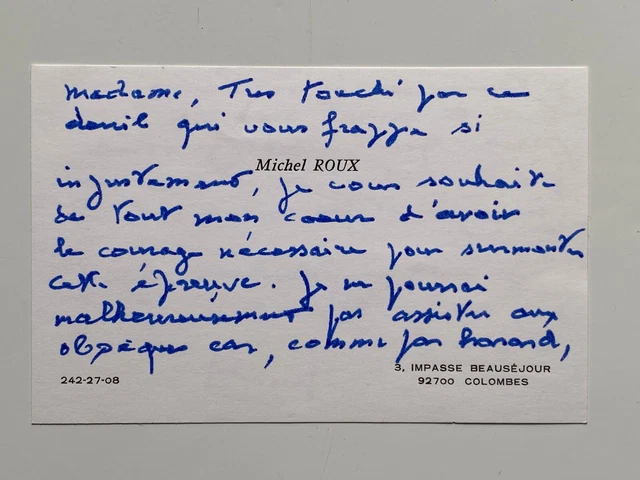 Madame, Très touché par ce
deuil qui vous frappe si
Michel ROUX
injustement, je vous souhaite
de tout mon coeur d'avoir
le courage nécessaire pour surmonter
cette épreuve. Je ne pourrai
malheureusement pas assister aux
obsèques car, comme par hasard,
242-27-08
3, IMPASSE BEAUSÉJOUR
92700 COLOMBES